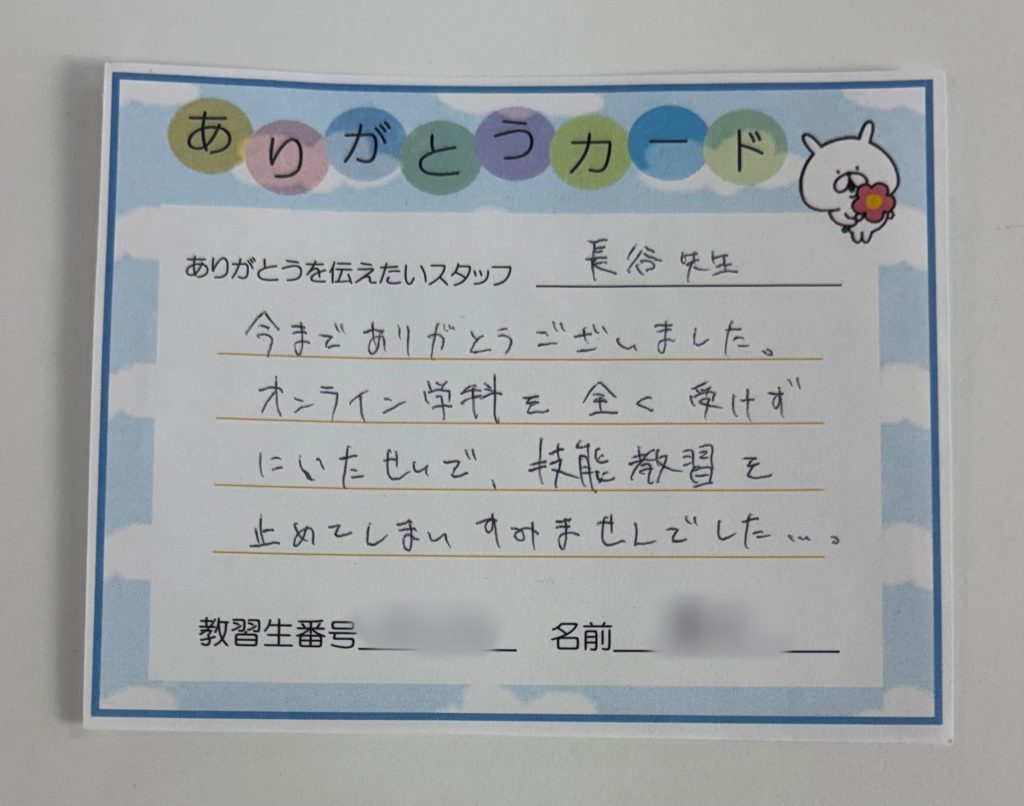 ありがとうカード
ありがとうを伝えたいスタッフ 長谷先生
今までありがとうございました。
オンライン学科を全く受けず
にいたせいで、技能教習を
止めてしまいすみませんでした…。
教習生番号 名前